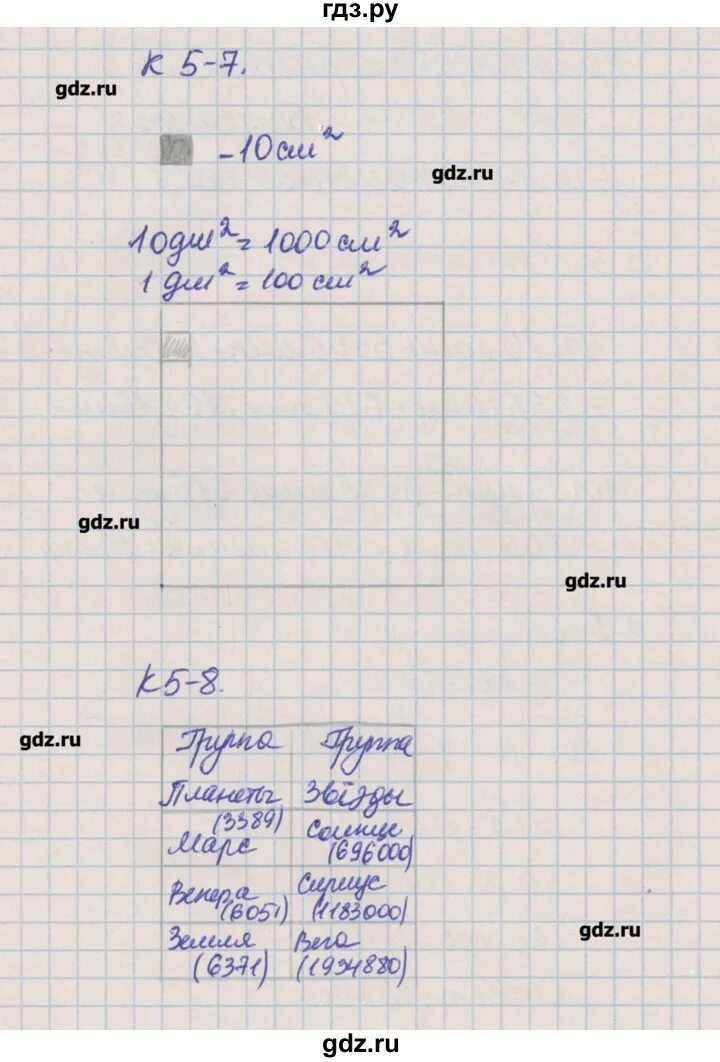 гдз.ру
К 5-7.
gdz.ru
- 10 см²
gdz.ru
10 дм² = 1000 см²
1 дм² = 100 см²
gdz.ru
gdz.ru
К 5-8.
gdz.ru
Группа Группа
Планеты Звёзды
Марс (3389) Солнце (696000)
Венера (6051) Сириус (1183000)
gdz.ru
Земля (6371) Вега (1934880)
gdz.ru